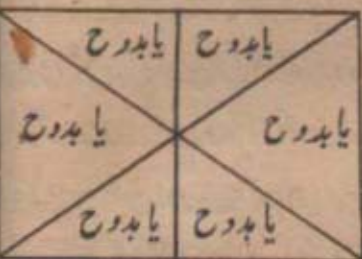 یا بدوح یا بدوح
یا بدوح یا بدوح
یا بدوح یا بدوح